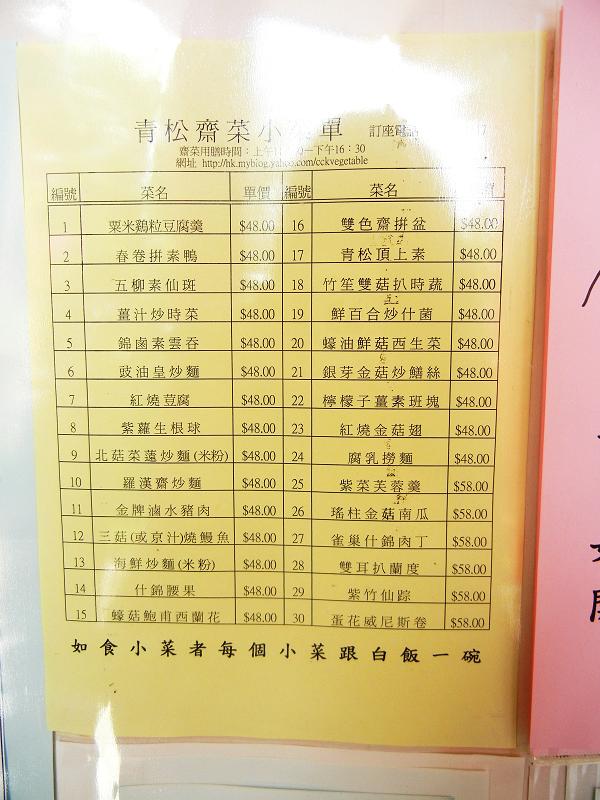 青松齋菜小 單 訂座電
齋菜用膳時間：上午 —下午16：30
網址 http://hk.myblog.yahoo.com/cckvegetable
編號 菜名 單價 編號 菜名
1 粟米鷄粒豆腐羹 $48.00 16 雙色齋拼盆 $48.00
2 春卷拼素鴨 $48.00 17 青松頂上素 $48.00
3 五柳素仙斑 $48.00 18 竹笙雙菇扒時蔬 $48.00
4 薑汁炒時菜 $48.00 19 鮮百合炒什菌 $48.00
5 錦鹵素雲吞 $48.00 20 蠔油鮮菇西生菜 $48.00
6 豉油皇炒麵 $48.00 21 銀芽金菇炒鱔絲 $48.00
7 紅燒荳腐 $48.00 22 檸檬子薑素班塊 $48.00
8 紫蘿生根球 $48.00 23 紅燒金菇翅 $48.00
9 北菇菜薳炒麵(米粉) $48.00 24 腐乳撈麵 $48.00
10 羅漢齋炒麵 $48.00 25 紫菜芙蓉羹 $58.00
11 金牌滷水豬肉 $48.00 26 瑤柱金菇南瓜 $58.00
12 三菇(或京汁)燒鰻魚 $48.00 27 雀巢什錦肉丁 $58.00
13 海鮮炒麵(米粉) $48.00 28 雙耳扒蘭度 $58.00
14 什錦腰果 $48.00 29 紫竹仙踪 $58.00
15 蠔菇鮑甫西蘭花 $48.00 30 蛋花威尼斯卷 $58.00
如食小菜者每個小菜跟白飯一碗